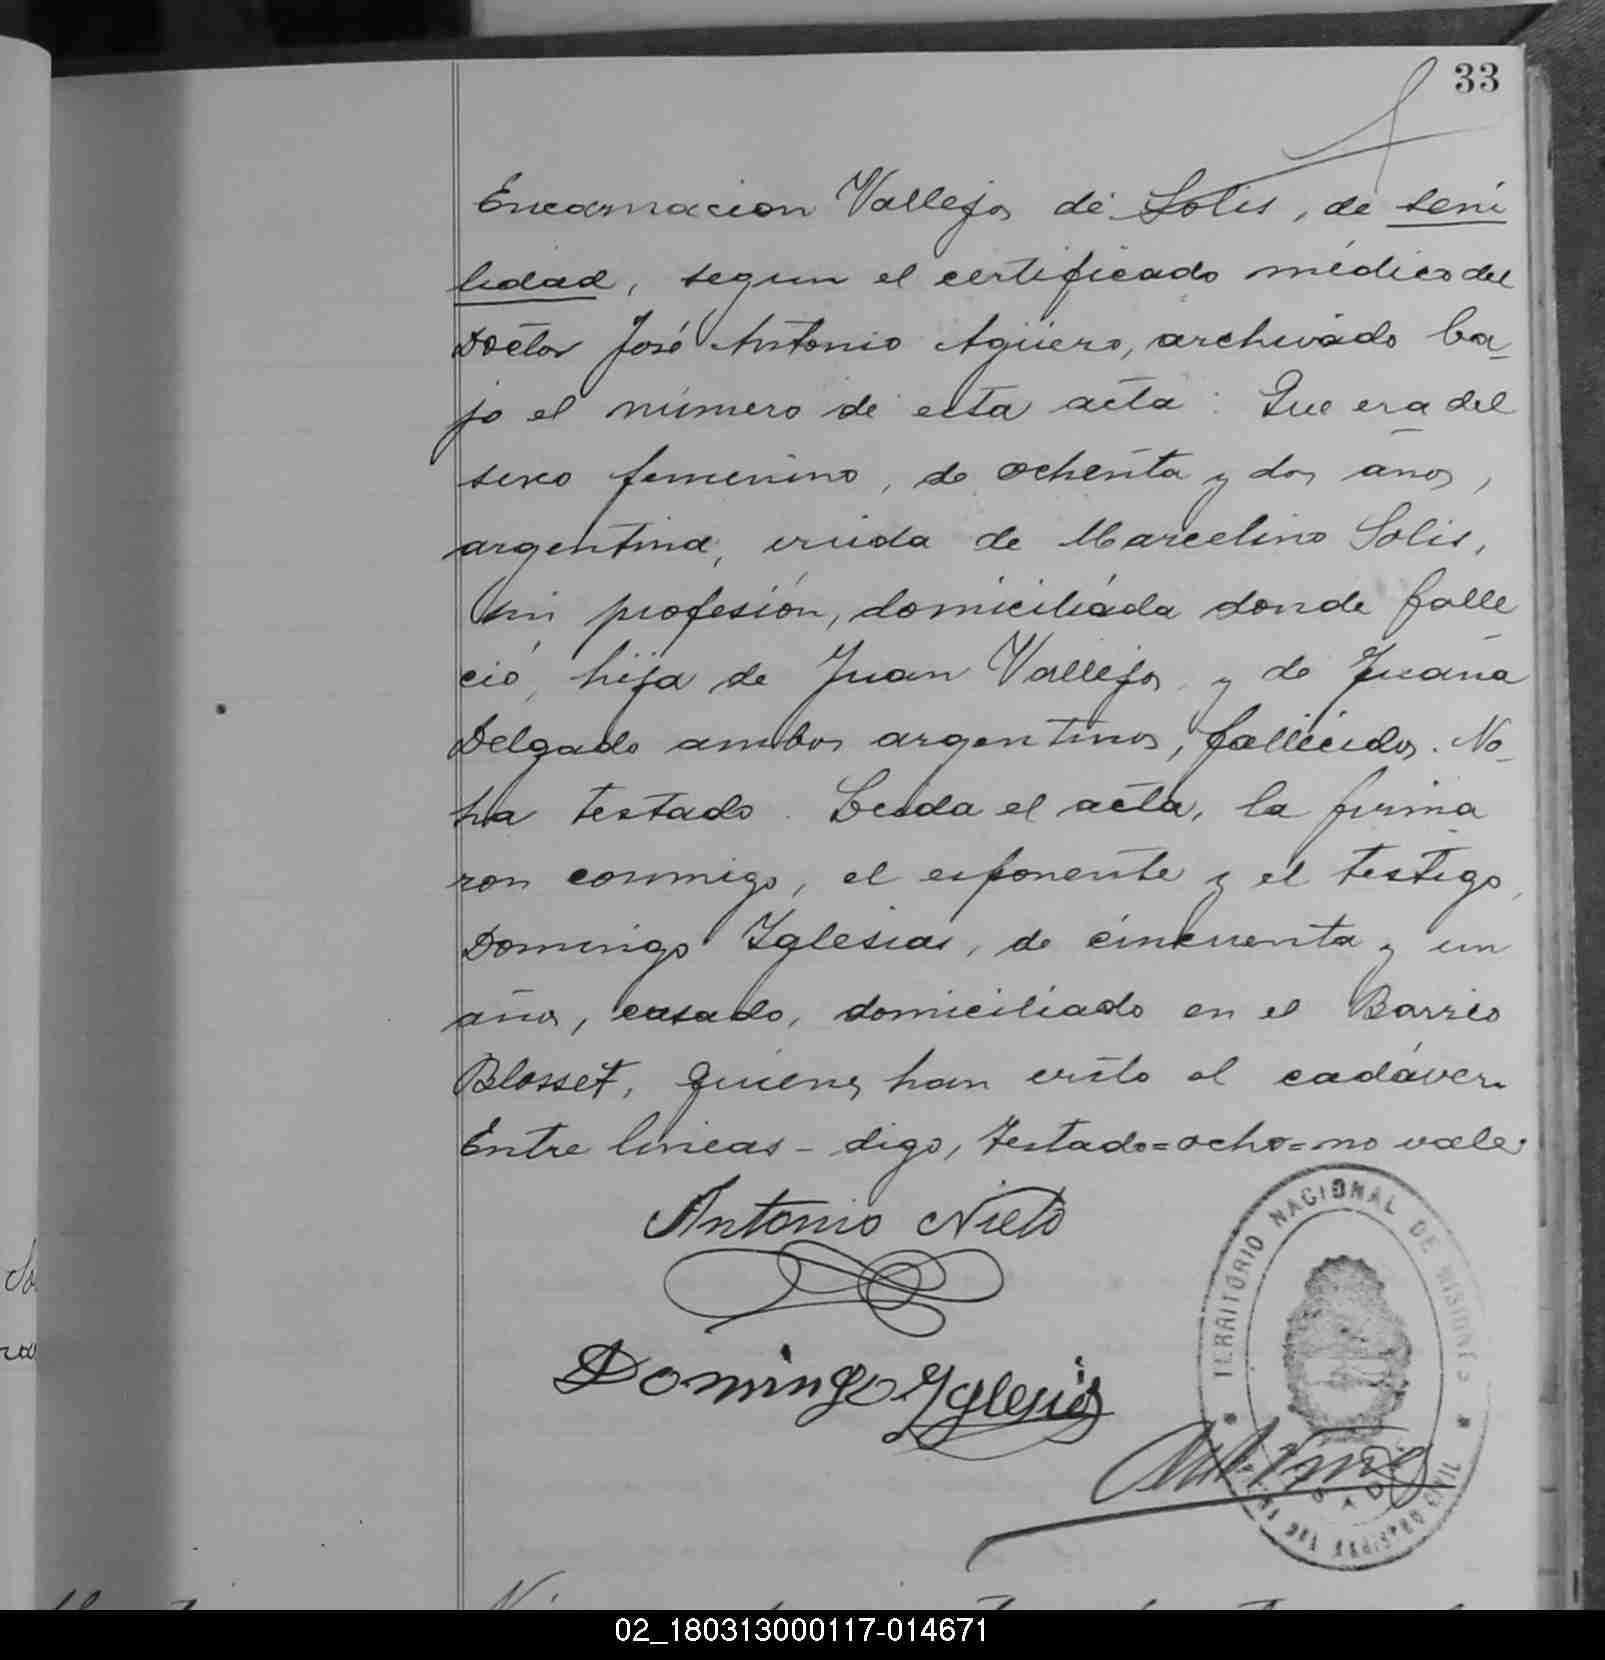 33
Encarnacion Vallejos de Solis, de seni
lidad, segun el certificado médico del
Doctor José Antonio Agüero, archivado ba-
jo el número de esta acta: Que era del
sexo femenino, de ochenta y dos años,
argentina, viuda de Marcelino Solis,
sin profesión, domiciliada donde falle
ció, hija de Juan Vallejos y de Juana
Delgado ambos argentinos, fallecidos. No-
ha testado. Leida el acta, la firma
ron conmigo, el exponente y el testigo,
Domingo Iglesias, de cincuenta y un
años, casado, domiciliado en el Barrio
Blosset, quienes han visto el cadáver.
Entre lineas - digo, testado=ocho=no vale.
Antonio Nieto
Domingo Iglesias
TERRITORIO NACIONAL DE MISIONES
DEL REGISTRO CIVIL
02_180313000117-014671